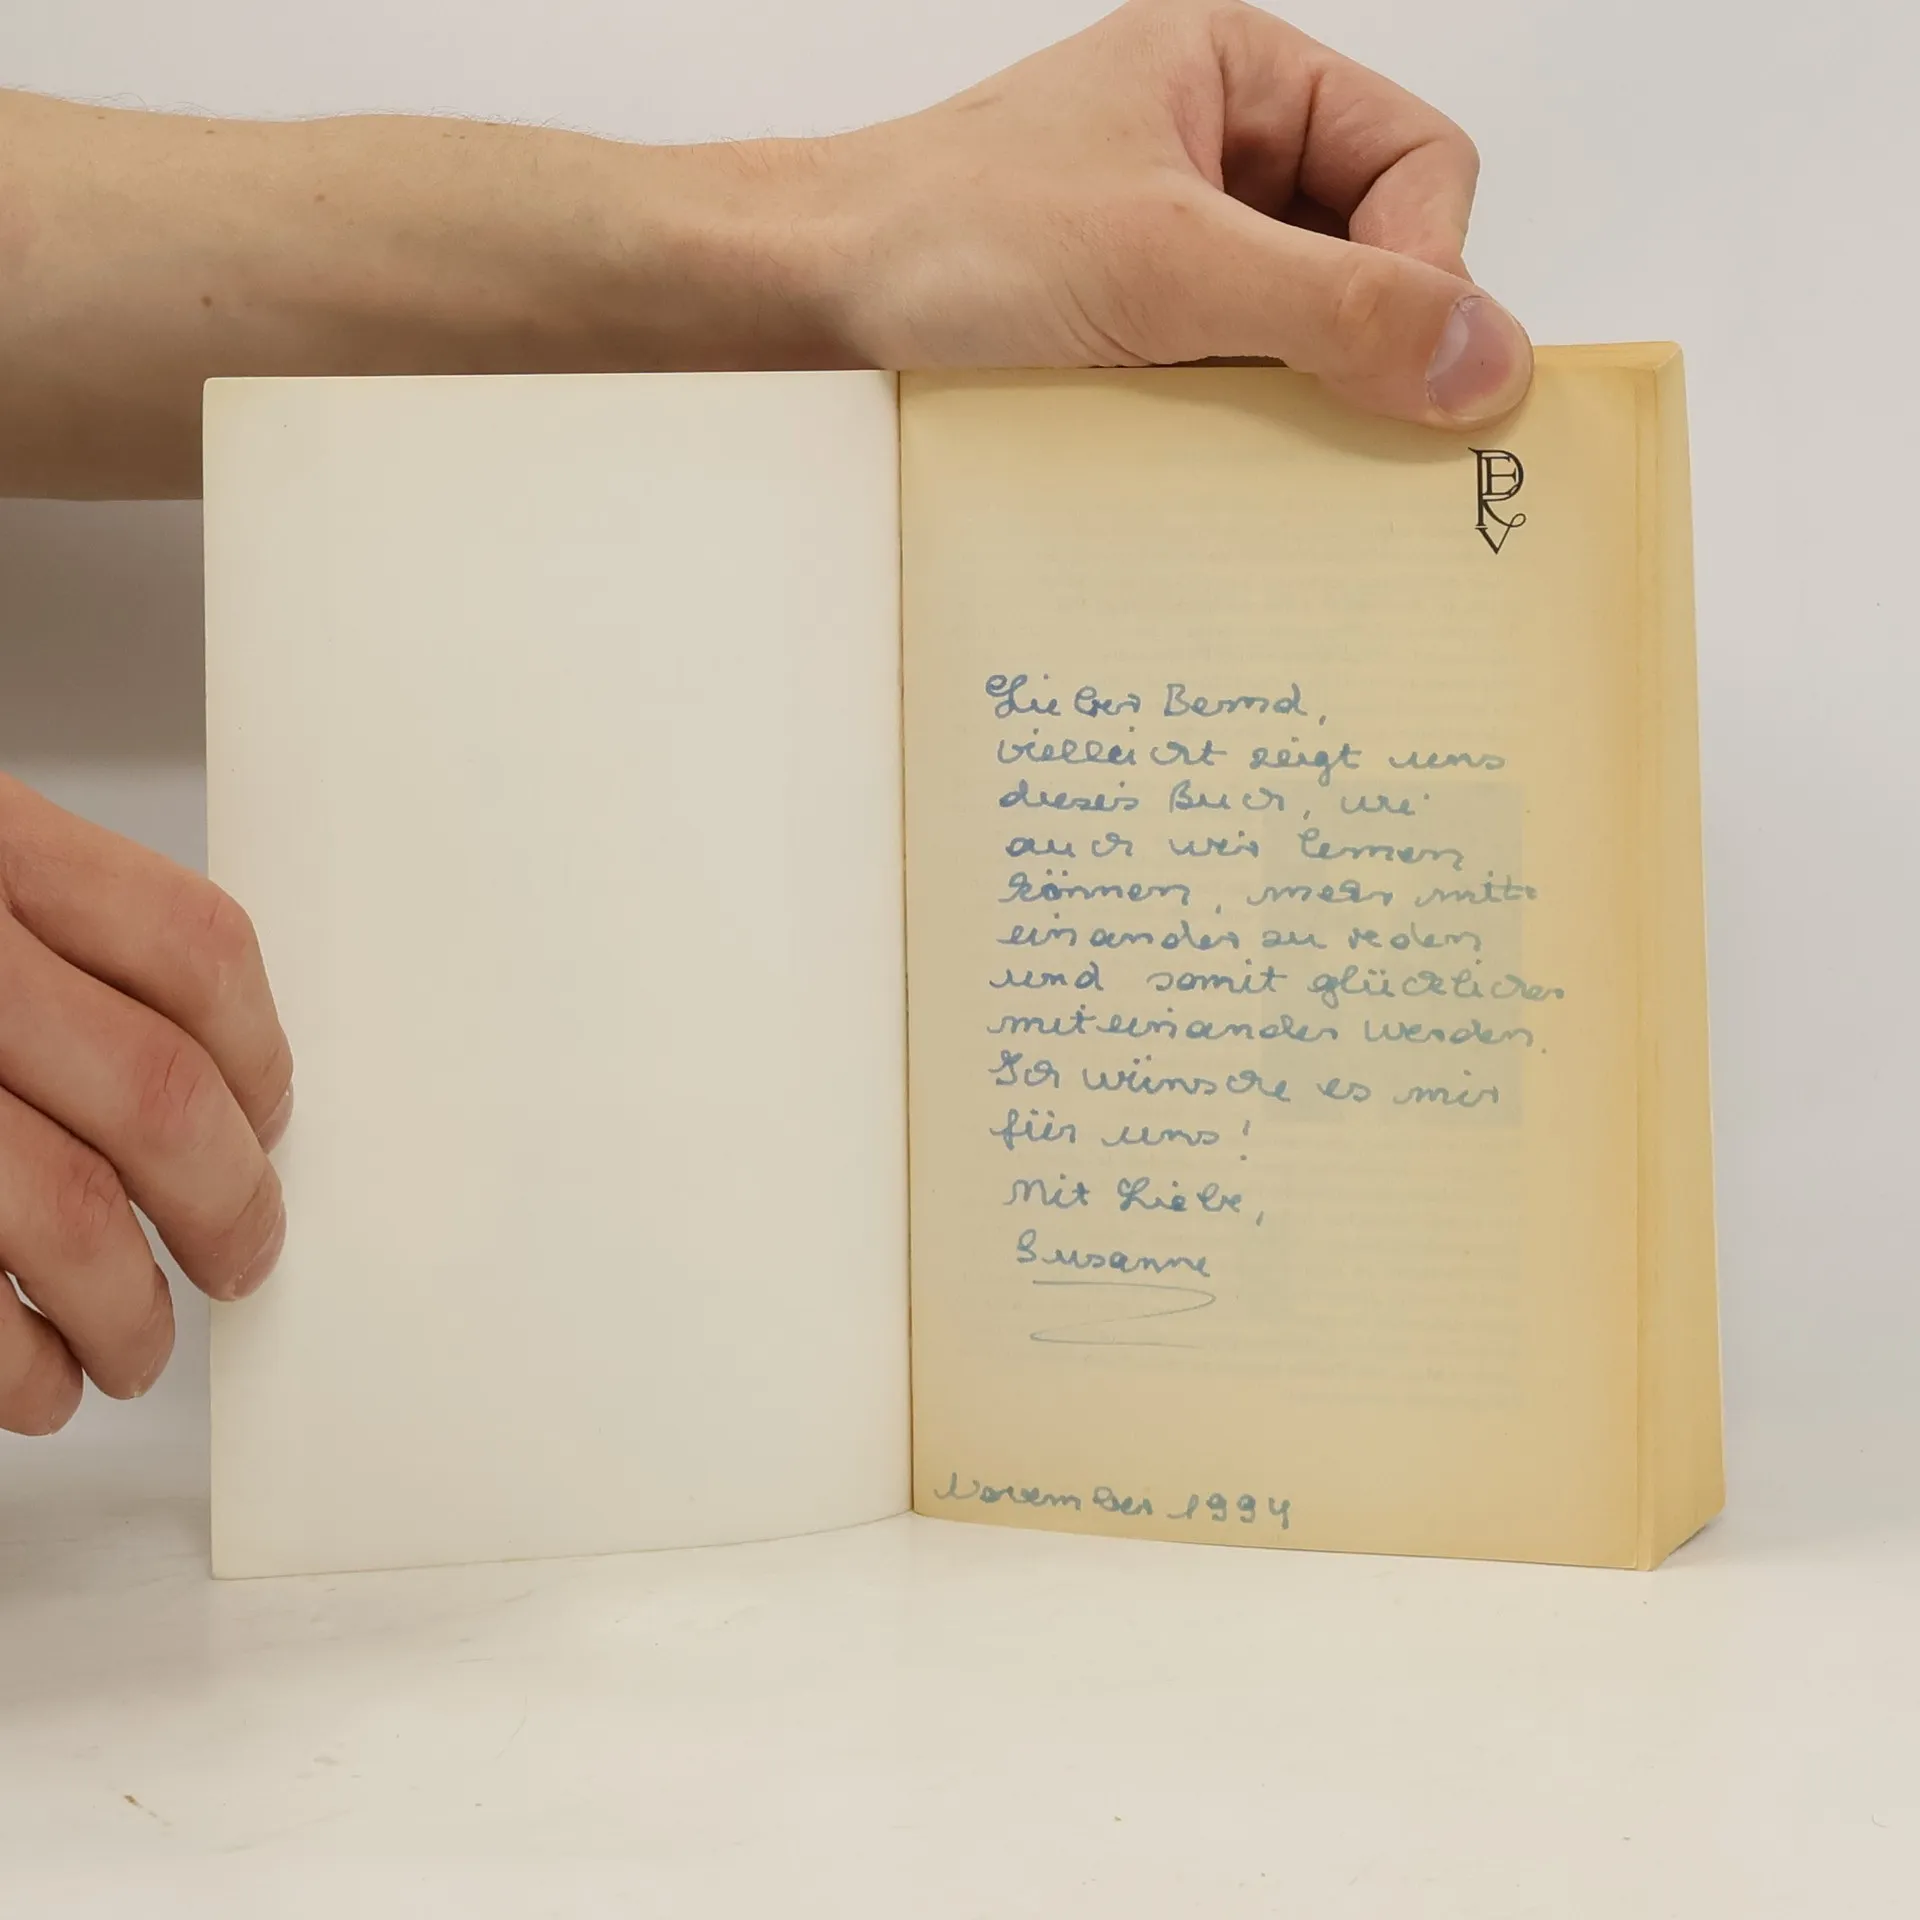 Lieber Bernd,
vielleicht zeigt uns
dieses Buch, wie
auch wir lernen
können, mehr mit-
einander zu reden
und somit glücklicher
miteinander werden.
Ich wünsche es mir
für uns!
Mit Liebe,
Susanne
November 1994